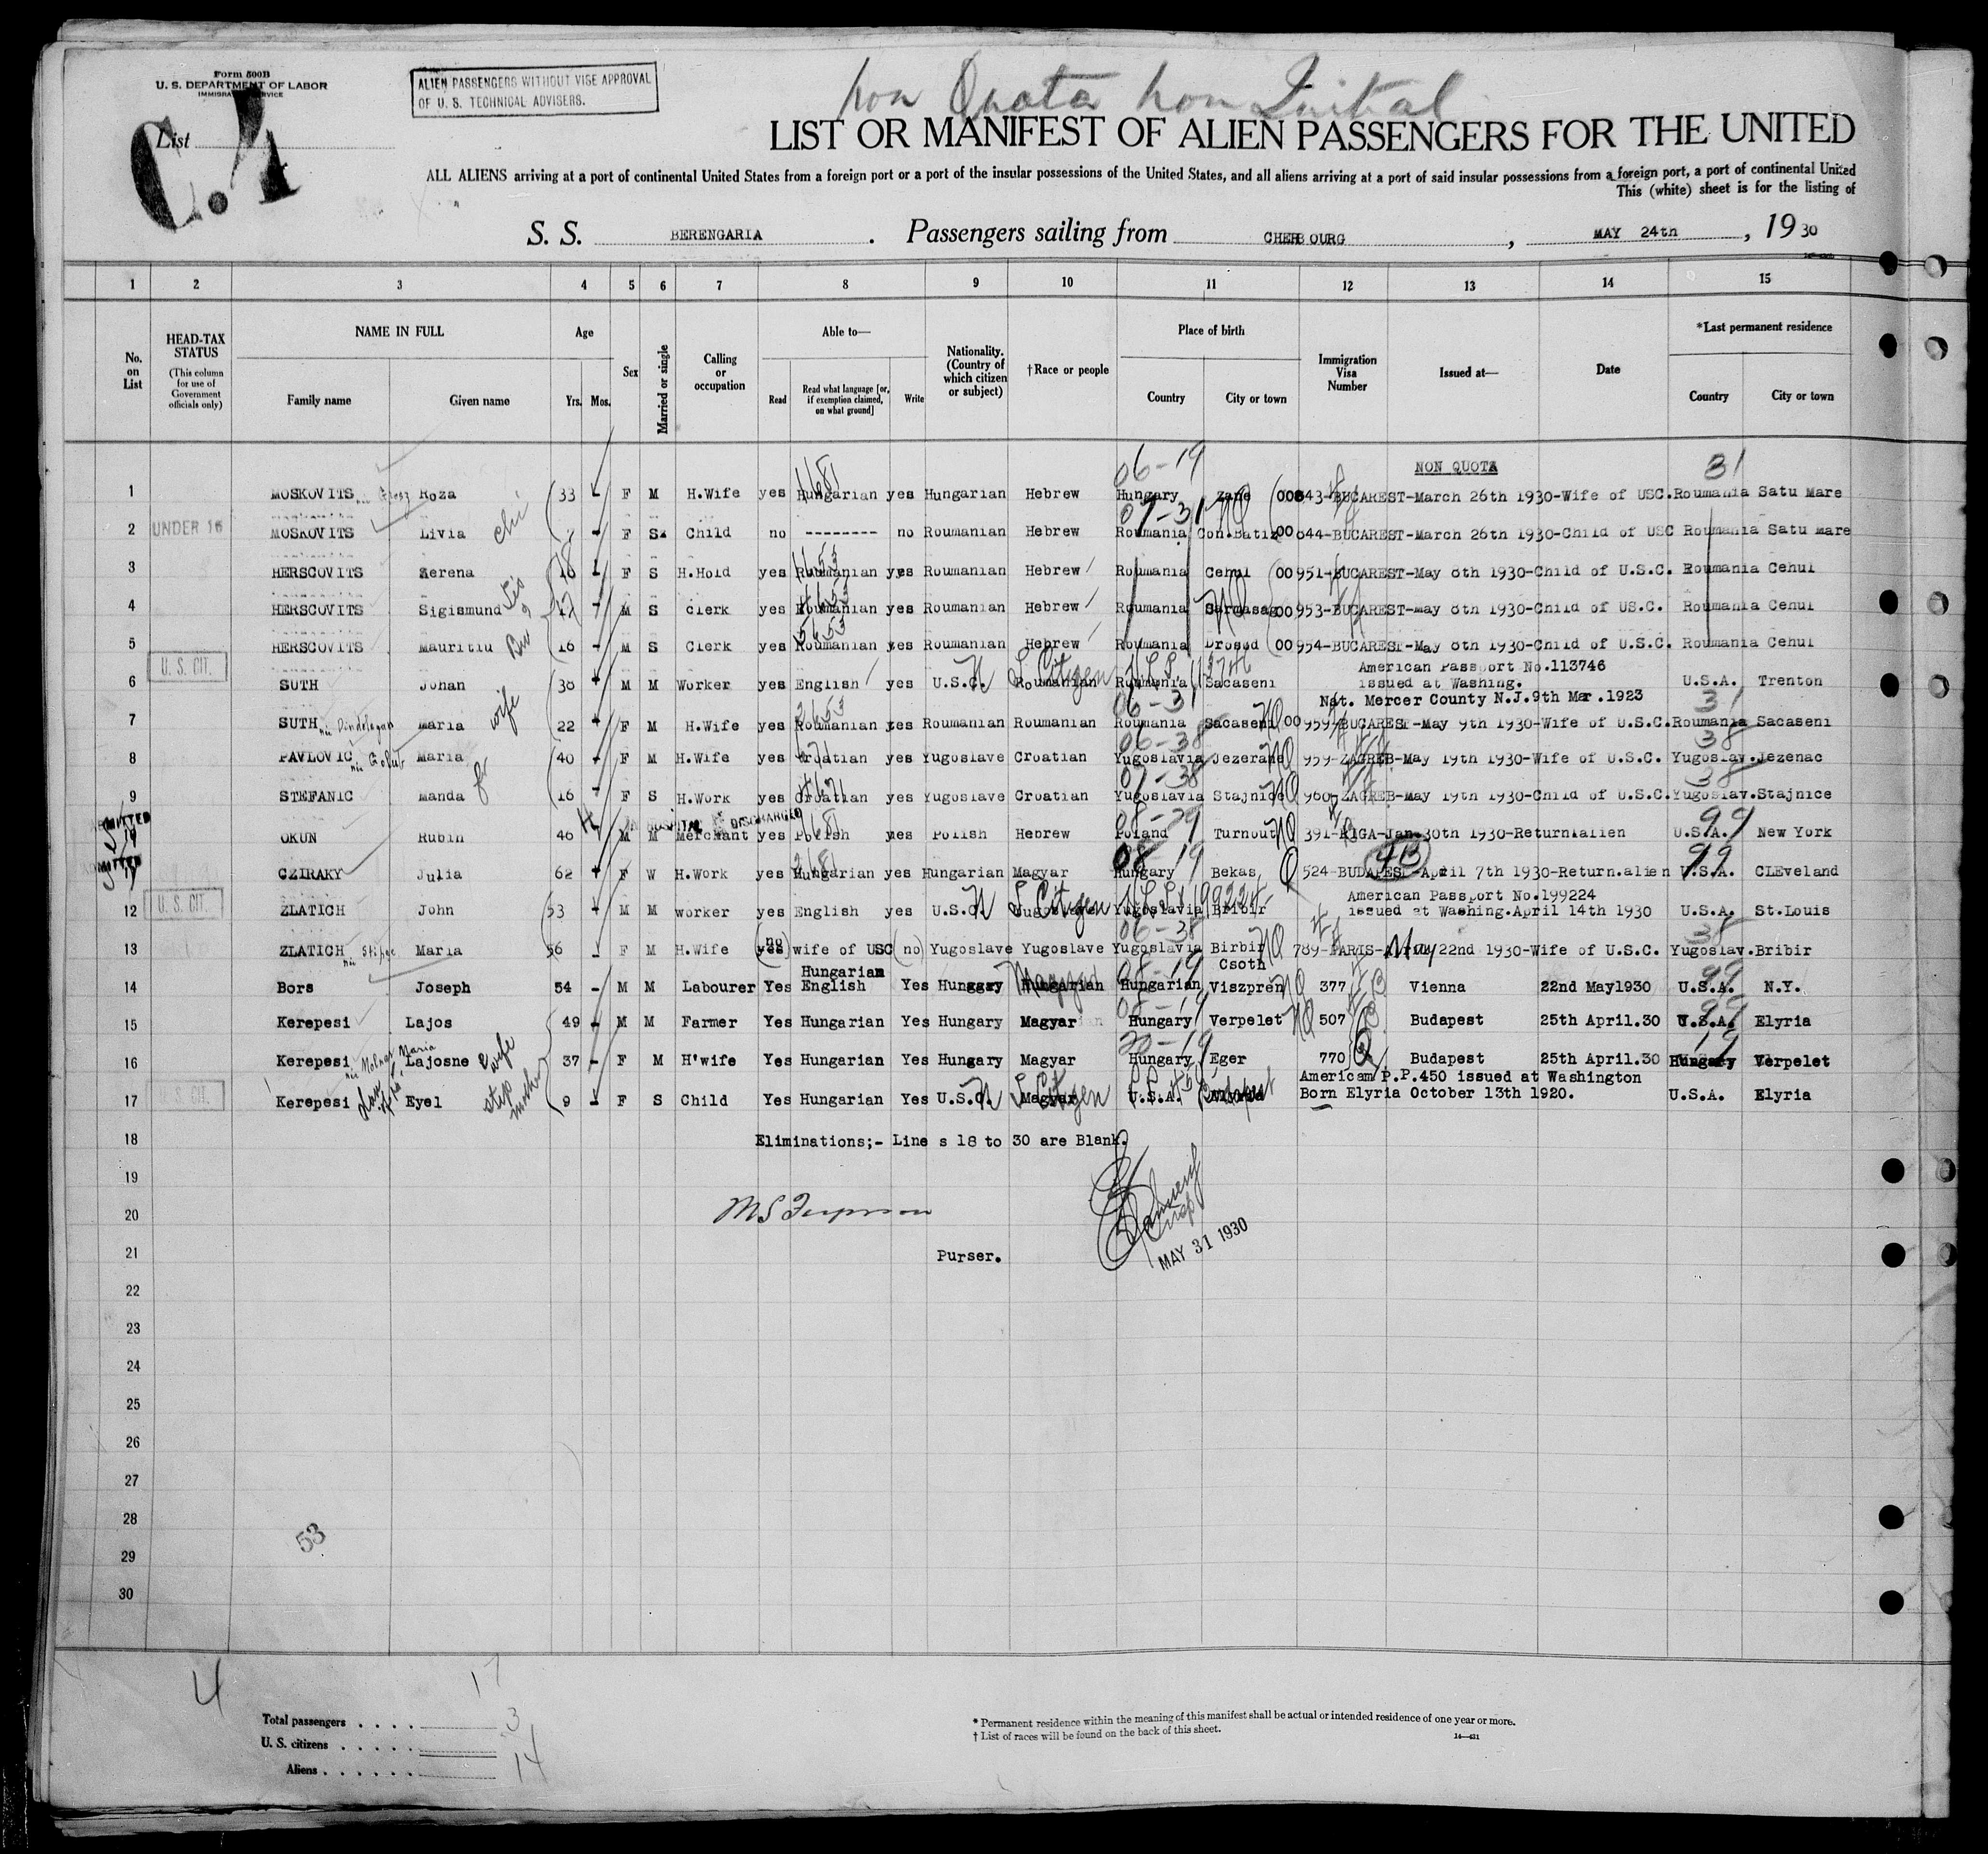 Form 500B
U. S. DEPARTMENT OF LABOR
ALIEN PASSENGERS WITHOUT VISE APPROVAL
OF U. S. TECHNICAL ADVISERS.
non Quota non Initial
List
C.4
LIST OR MANIFEST OF ALIEN PASSENGERS FOR THE UNITED
ALL ALIENS arriving at a port of continental United States from a foreign port or a port of the insular possessions of the United States, and all aliens arriving at a port of said insular possessions from a foreign port, a port of continental United
This (white) sheet is for the listing of
S. S. BERENGARIA . Passengers sailing from CHERBOURG , MAY 24th , 1930
1 2 3 4 5 6 7 8 9 10 11 12 13 14 15
No. on List HEAD-TAX STATUS (This column for use of Government officials only) NAME IN FULL Family name Given name Age Yrs. Mos. Sex Married or single Calling or occupation Able to— Read Read what language [or, if exemption claimed, on what ground] Write Nationality. (Country of which citizen or subject) †Race or people Place of birth Country City or town Immigration Visa Number Issued at— Date *Last permanent residence Country City or town
NON QUOTA
06-19 31
1 MOSKOVITS Roza 33 F M H.Wife yes Hungarian yes Hungarian Hebrew Hungary 00843-BUCAREST-March 26th 1930-Wife of USC. Roumania Satu Mare
07-31
2 UNDER 16 MOSKOVITS Livia F S Child no -------- no Roumanian Hebrew Roumania 00 844-BUCAREST-March 26th 1930-Child of USC Roumania Satu mare
3 HERSCOVITS Zerena F S H.Hold yes Roumanian yes Roumanian Hebrew Roumania Cehul 00 951-BUCAREST-May 8th 1930-Child of U.S.C. Roumania Cehul
4 HERSCOVITS Sigismund M S Clerk yes Roumanian yes Roumanian Hebrew Roumania Sarmasag 00 953-BUCAREST-May 8th 1930-Child of US.C. Roumania Cehul
5 HERSCOVITS Mauritiu 16 M S Clerk yes Roumanian yes Roumanian Hebrew Roumania Drosod 00 954-BUCAREST-May 8th 1930-Child of U.S.C. Roumania Cehul
U. S. CIT.
American Passport No.113746
6 SUTH Johan 38 M M Worker yes English yes U.S.C. Roumanian Roumania Sacaseni issued at Washing. U.S.A. Trenton
Nat. Mercer County N.J.9th Mar.1923
06-31 31
7 SUTH wife Maria 22 F M H.Wife yes Roumanian yes Roumanian Roumanian Roumania Sacaseni 00 959-BUCAREST-May 9th 1930-Wife of U.S.C. Roumania Sacaseni
06-38 38
8 PAVLOVIC née Golub Maria 40 F M H.Wife yes Croatian yes Yugoslave Croatian Yugoslavia Jezerane NQ 959-ZAGREB-May 19th 1930-Wife of U.S.C. Yugoslav. Jezenac
07-38 38
9 STEFANIC Manda 16 F S H.Work yes Croatian yes Yugoslave Croatian Yugoslavia Stajnice NQ 960-ZAGREB-May 19th 1930-Child of U.S.C. Yugoslav. Stajnice
IN HOSPITAL DISCHARGED
ADMITTED OKUN Rubin 46 M M Merchant yes Polish yes Polish Hebrew Poland Turnout NQ 391-RIGA-Jan.30th 1930-Return.alien U.S.A. New York
ADMITTED CZIRAKY Julia 62 F W H.Work yes Hungarian yes Hungarian Magyar Hungary Bekas 524-BUDAPEST-April 7th 1930-Return.alien U.S.A. CLEveland
U. S. CIT.
American Passport No.199224
12 ZLATICH John 53 M M worker yes English yes U.S.C. Yugoslavia Bribir issued at Washing.April 14th 1930 U.S.A. St.Louis
06-38 38
13 ZLATICH Maria 56 F M H.Wife (no) yes wife of USC (no) Yugoslave Yugoslave Yugoslavia Birbir NQ 789-PARIS- May 22nd 1930-Wife of U.S.C. Yugoslav. Bribir
14 Bors Joseph 54 - M M Labourer Yes Hungarian English Yes Hunggry Magyar Hungarian Csoth Viszprén NQ 377 Vienna 22nd May1930 U.S.A. N.Y.
15 Kerepesi Lajos 49 - M M Farmer Yes Hungarian Yes Hungary Magyar Hungary Verpelet NQ 507 Budapest 25th April.30 U.S.A. Elyria
16 Kerepesi née Molnar Maria Lajosne wife 37 - F M H'wife Yes Hungarian Yes Hungary Magyar Hungary Eger 770 Budapest 25th April.30 Hungary Verpelet
American P.P.450 issued at Washington
17 U. S. CIT. Kerepesi Eyel step mother 9 - F S Child Yes Hungarian Yes U.S.C. Magyar U.S.A. Born Elyria October 13th 1920. U.S.A. Elyria
18 Eliminations;- Line s 18 to 30 are Blank.
19
20
21 Purser.
MAY 31 1930
22
23
24
25
26
27
28
29
30
53
4
17
Total passengers . . . . 3
U. S. citizens . . . . .
Aliens . . . . . . 14
* Permanent residence within the meaning of this manifest shall be actual or intended residence of one year or more.
† List of races will be found on the back of this sheet.